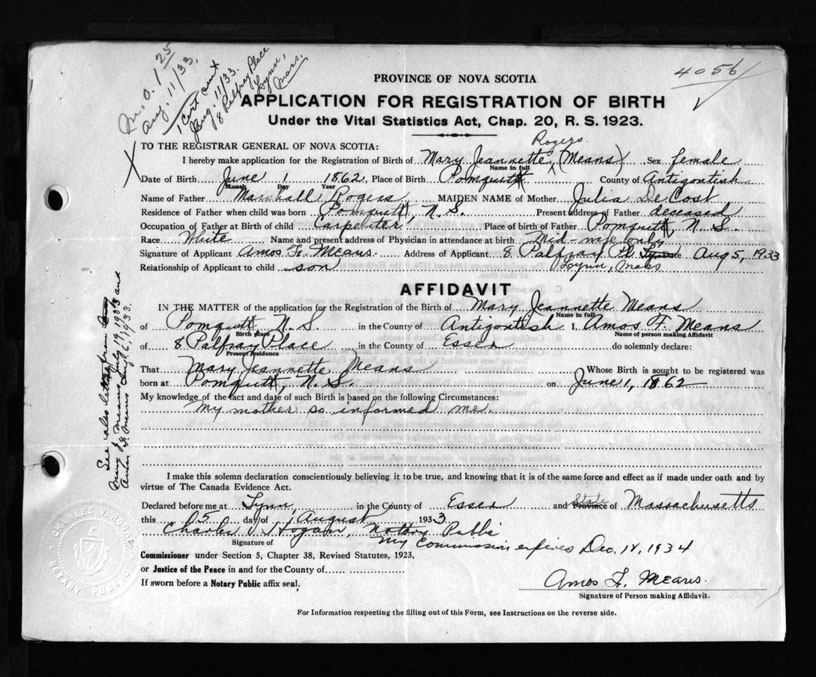 PROVINCE OF NOVA SCOTIA
4056
M.O. 1 25
Aug. 11/33.
1 Cert sent
Aug. 11/33.
8 Palfray Place
Lynn,
Mass.
APPLICATION FOR REGISTRATION OF BIRTH
Under the Vital Statistics Act, Chap. 20, R. S. 1923.
TO THE REGISTRAR GENERAL OF NOVA SCOTIA:
Rogers
I hereby make application for the Registration of Birth of Mary Jeannette (Means) Sex female
Name in full
Date of Birth June 1 1862 Place of Birth Pomquett County of Antigontish
Month Day Year
Name of Father Marshall Rogers MAIDEN NAME of Mother Julia De Cost
Residence of Father when child was born Pomquett, N. S. Present address of Father deceased
Occupation of Father at Birth of child Carpenter, Place of birth of Father Pomquett, N. S.
Race White Name and present address of Physician in attendance at birth Mid-wife only
Signature of Applicant Amos F. Means. Address of Applicant 8 Palfray Pl. Date Aug 5, 1933
Lynn, Mass
Relationship of Applicant to child son
AFFIDAVIT
IN THE MATTER of the application for the Registration of the Birth of Mary Jeannette Means
Name in full
of Pomquett, N. S. in the County of Antigontish I, Amos F. Means
Birth place Name of person making Affidavit
of 8 Palfray Place in the County of Essex do solemnly declare:
Present residence
That Mary Jeannette Means Whose Birth is sought to be registered was
born at Pomquett, N. S. on June 1, 1862
My knowledge of the fact and date of such Birth is based on the following Circumstances:
My mother so informed me.
I make this solemn declaration conscientiously believing it to be true, and knowing that it is of the same force and effect as if made under oath and by
virtue of The Canada Evidence Act.
Declared before me at Lynn, in the County of Essex and State Province of Massachusetts
this 5 day of August 1933
Charles Hogan, Notary Public
Signature of
My Commission expires Dec. 14, 1934
Commissioner under Section 5, Chapter 38, Revised Statutes, 1923,
or Justice of the Peace in and for the County of
If sworn before a Notary Public affix seal.
Amos F. Means.
Signature of Person making Affidavit.
For Information respecting the filling out of this Form, see Instructions on the reverse side.
See also letter from
Mary J. Means July 19, 1933 and
Means Aug 6, 1933.